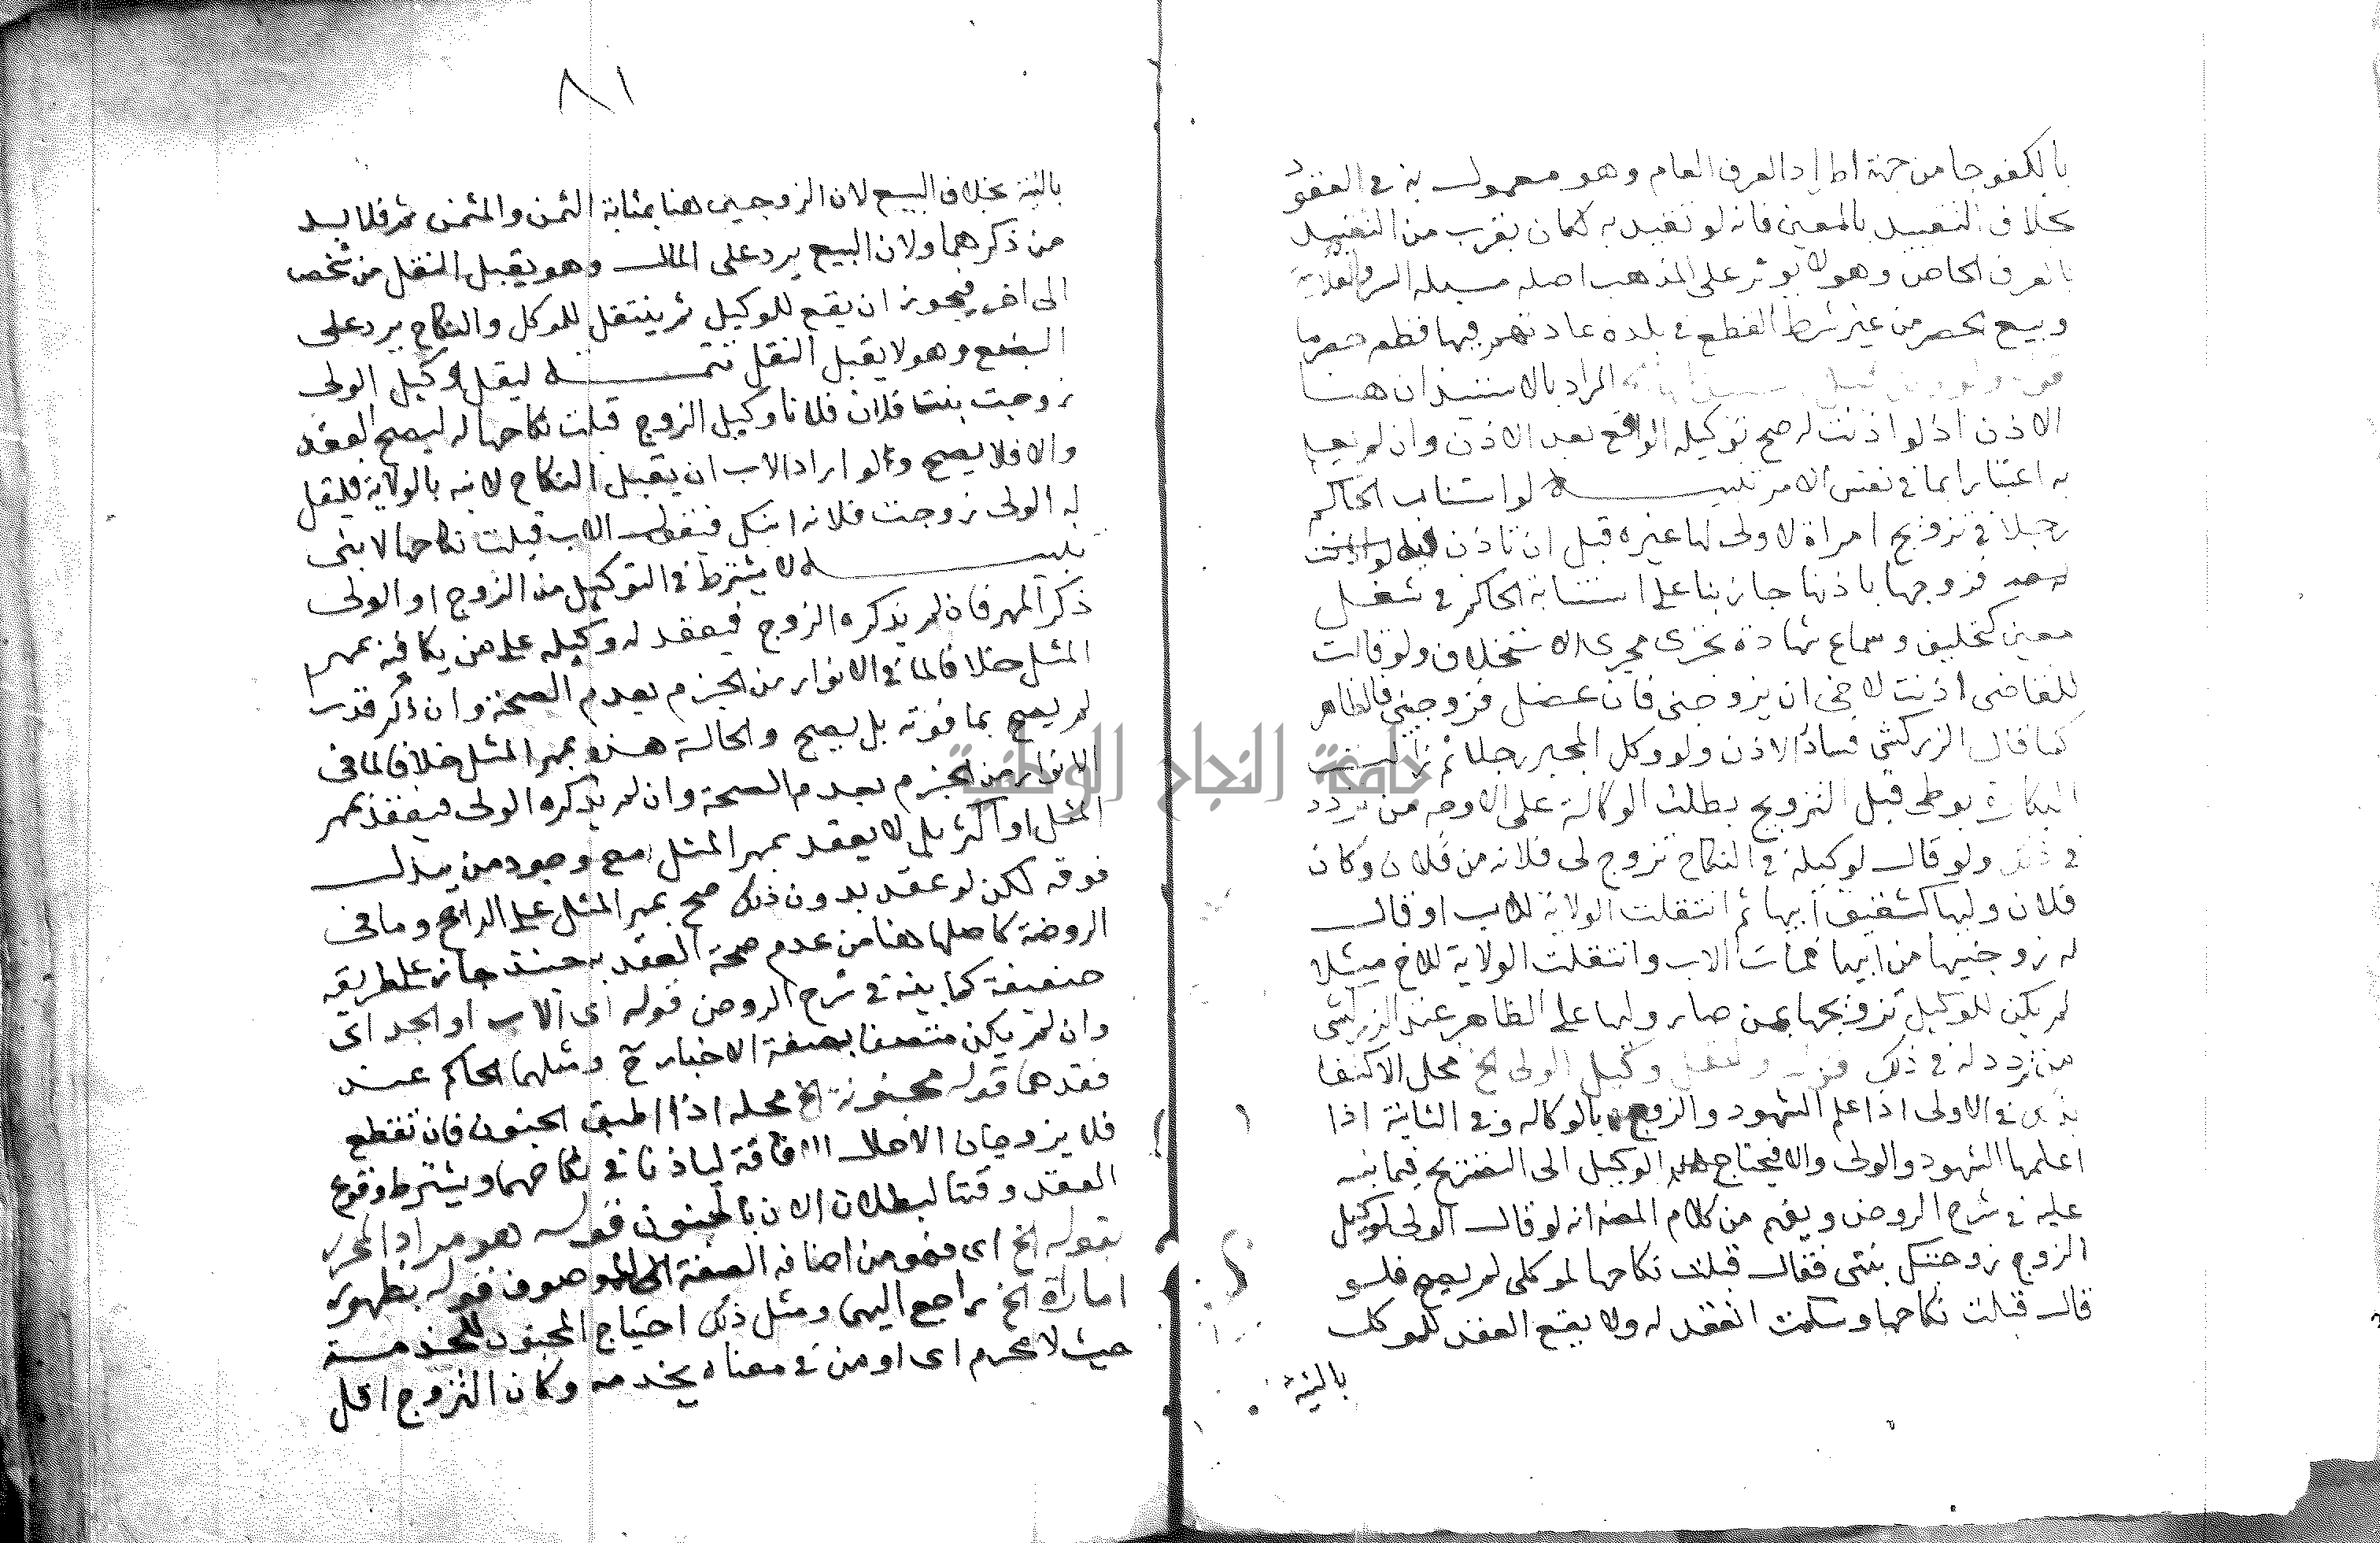 بالكفو جا من جهة اطراد العرف العام وهو معمول به في العقود
بخلاف التقييد بالمعين فانه لو تقيد به لكان يقرب من التقييد
بالعرف الخاص وهو لا يوثر على المذهب اصله مسيلة السر والعلانية
وبيع الحصرم من غير شرط القطع في بلدة عادتهم فيها قطعه حصرما
المراد بالاستيذان هنا
الاذن اذ لو اذنت له صح توكيله الواقع بعد الاذن وان لم يعلم
به اعتبارا بما في نفس الامر تنبيه لو استناب الحاكم
رجلا في تزويج امراة لا ولى لها غيره قبل ان تاذن
له صح فزوجها باذنها جاز بنا على استنابة الحاكم في شغل
معين كتحليف وسماع شهادة تجزى مجرى الاستخلاف ولو قالت
للقاضى اذنت لاخى ان يزوجنى فان عضل فزوجنى فالظاهر
كما قال الزركشى فساد الاذن ولو وكل المجبر رجلا ثم زالت
البكارة بوطى قبل التزويج بطلت الوكالة على الاوجه من تردد
في ذلك ولو قال لوكيله في النكاح تزوج لى فلانه من فلان وكان
فلان وليها كشقيق ابيها ثم انتقلت الولاية للاب او قال
له زوجنيها من ابيها فمات الاب وانتقلت الولاية للاخ مثلا
لم يكن للوكيل تزويجها ممن صار وليها على الظاهر عند الزركشى
من تردد له في ذلك قوله وليقل وكيل الولى الخ محل الاكتفا
بذلك في الاولى اذا علم الشهود والزوج بالوكاله وفي الثانية اذا
اعلمها الشهود والولى والا فيحتاج الوكيل الى التصريح فيما نبه
عليه في شرح الروض ويفهم من كلام المصنف انه لو قال الولى لوكيل
الزوج زوجتك بنتى فقال قبلت نكاحها لموكلى لم يصح فلو
قال قبلت نكاحها وسكت انعقد له ولا يقع العقد للموكل
بالنية
٨١
بالنية بخلاف البيع لان الزوجين هنا بمثابة الثمن والمثمن ثم فلا بد
من ذكرهما ولان البيع يرد على المال وهو يقبل النقل من شخص
الى اخر فيجوز ان يقع للوكيل ثم ينتقل للموكل والنكاح يرد على
البضع وهو لا يقبل النقل تتمه ليقل وكيل الولى
زوجت بنت فلان فلانا وكيل الزوج قبلت نكاحها له ليصح العقد
والا فلا يصح ولو اراد الاب ان يقبل النكاح لابنه بالولاية فليقل
له الولى زوجت فلانه ابنك فيقول الاب قبلت نكاحها لابنى
تنبيه لا يشترط في التوكيل من الزوج او الولى
ذكر المهر فان لم يذكره الزوج فيعقد له وكيله على من يكافئه بمهر
المثل خلافا لما في الانوار من الجزم بعدم الصحة وان ذكر قدرا
لم يصح بما فوته بل يصح والحالة هذه بمهر المثل خلافا لما في
الانوار من الجزم بعدم الصحة وان لم يذكره الولى فيعقد بمهر
المثل او اكثر بلى لا يعقد بمهر المثل مع وجود من يبذل
فوقه لكن لو عقد بدون ذلك صح بمهر المثل على الراجح وما في
الروضة كاصلها هنا من عدم صحة العقد به حينئذ جاز على طريقه
ضعيفة كما بينه في شرح الروض قوله اى الاب او الجد اى
وان لم يكن متصفا بصفة الاخبار ومثلهما الحاكم عند
فقدهما قوله مجنونة الخ محله اذا اطبق الجنون فان تقطع
فلا يزوجان الا حال افاقة لياذنا في نكاحهما ويشترط وقوع
العقد وقتا لبطلان الاذن بالجنون قوله هو مراد المحرر
بقوله الخ اى فهو من اضافة الصفة الى الموصوف قوله بظهور
امارة الخ راجع اليهما ومثل ذلك احتياج المجنون للخدمة
حيث لا محرم اى او من في معناه يخدمه وكان التزوج اقل